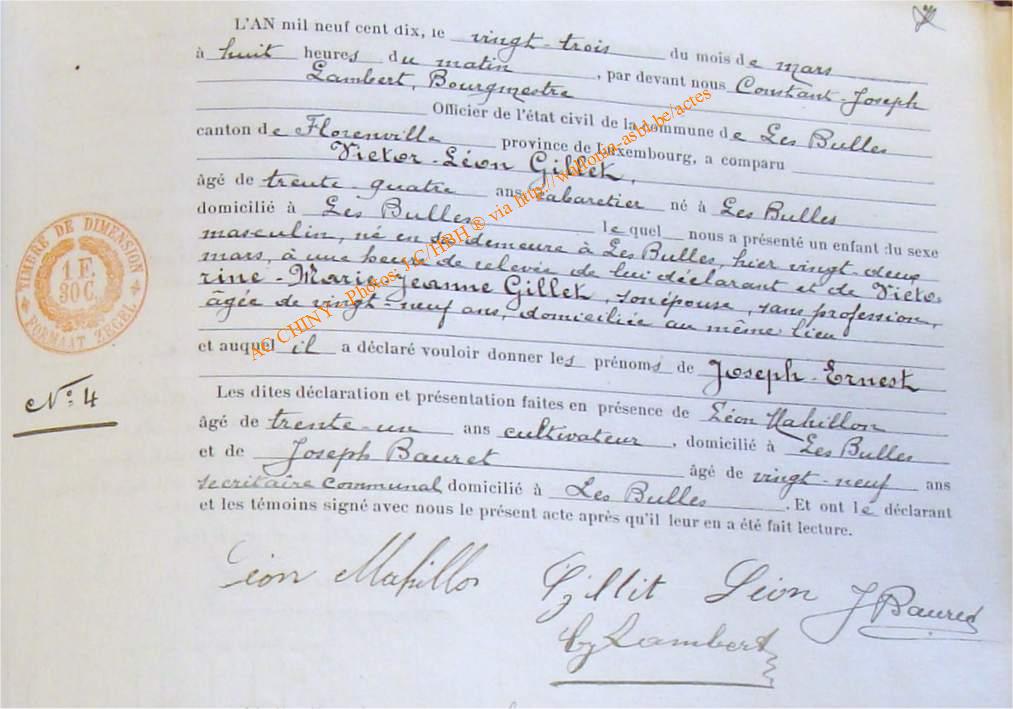 L'AN mil neuf cent dix, le vingt-trois du mois de mars
à huit heures du matin, par devant nous Constant-Joseph
Lambert, Bourgmestre
Officier de l'état civil de la commune de Les Bulles
canton de Florenville province de Luxembourg, a comparu
Victor-Léon Gillet,
âgé de trente-quatre ans cabaretier né à Les Bulles
domicilié à Les Bulles lequel nous a présenté un enfant du sexe
masculin, né en sa demeure à Les Bulles, hier vingt-deux
mars, à une heure de relevée de lui déclarant et de Victo-
rine-Marie-Jeanne Gillet, son épouse, sans profession,
âgée de vingt-neuf ans, domiciliée au même lieu
et auquel il a déclaré vouloir donner les prénoms de Joseph-Ernest
Les dites déclaration et présentation faites en présence de Léon Mahillon
âgé de trente-un ans cultivateur, domicilié à Les Bulles
et de Joseph Bauret âgé de vingt-neuf ans
secrétaire communal domicilié à Les Bulles. Et ont le déclarant
et les témoins signé avec nous le présent acte après qu'il leur en a été fait lecture.
TIMBRE DE DIMENSION
1 F.
30 C.
FORMAAT ZEGEL
N° 4
Léon Mahillon Gillet Léon J Bauret
Lambert
AC CHINY - Photos: J.C/HBH ® via http://wallonia-asbl.be/actes